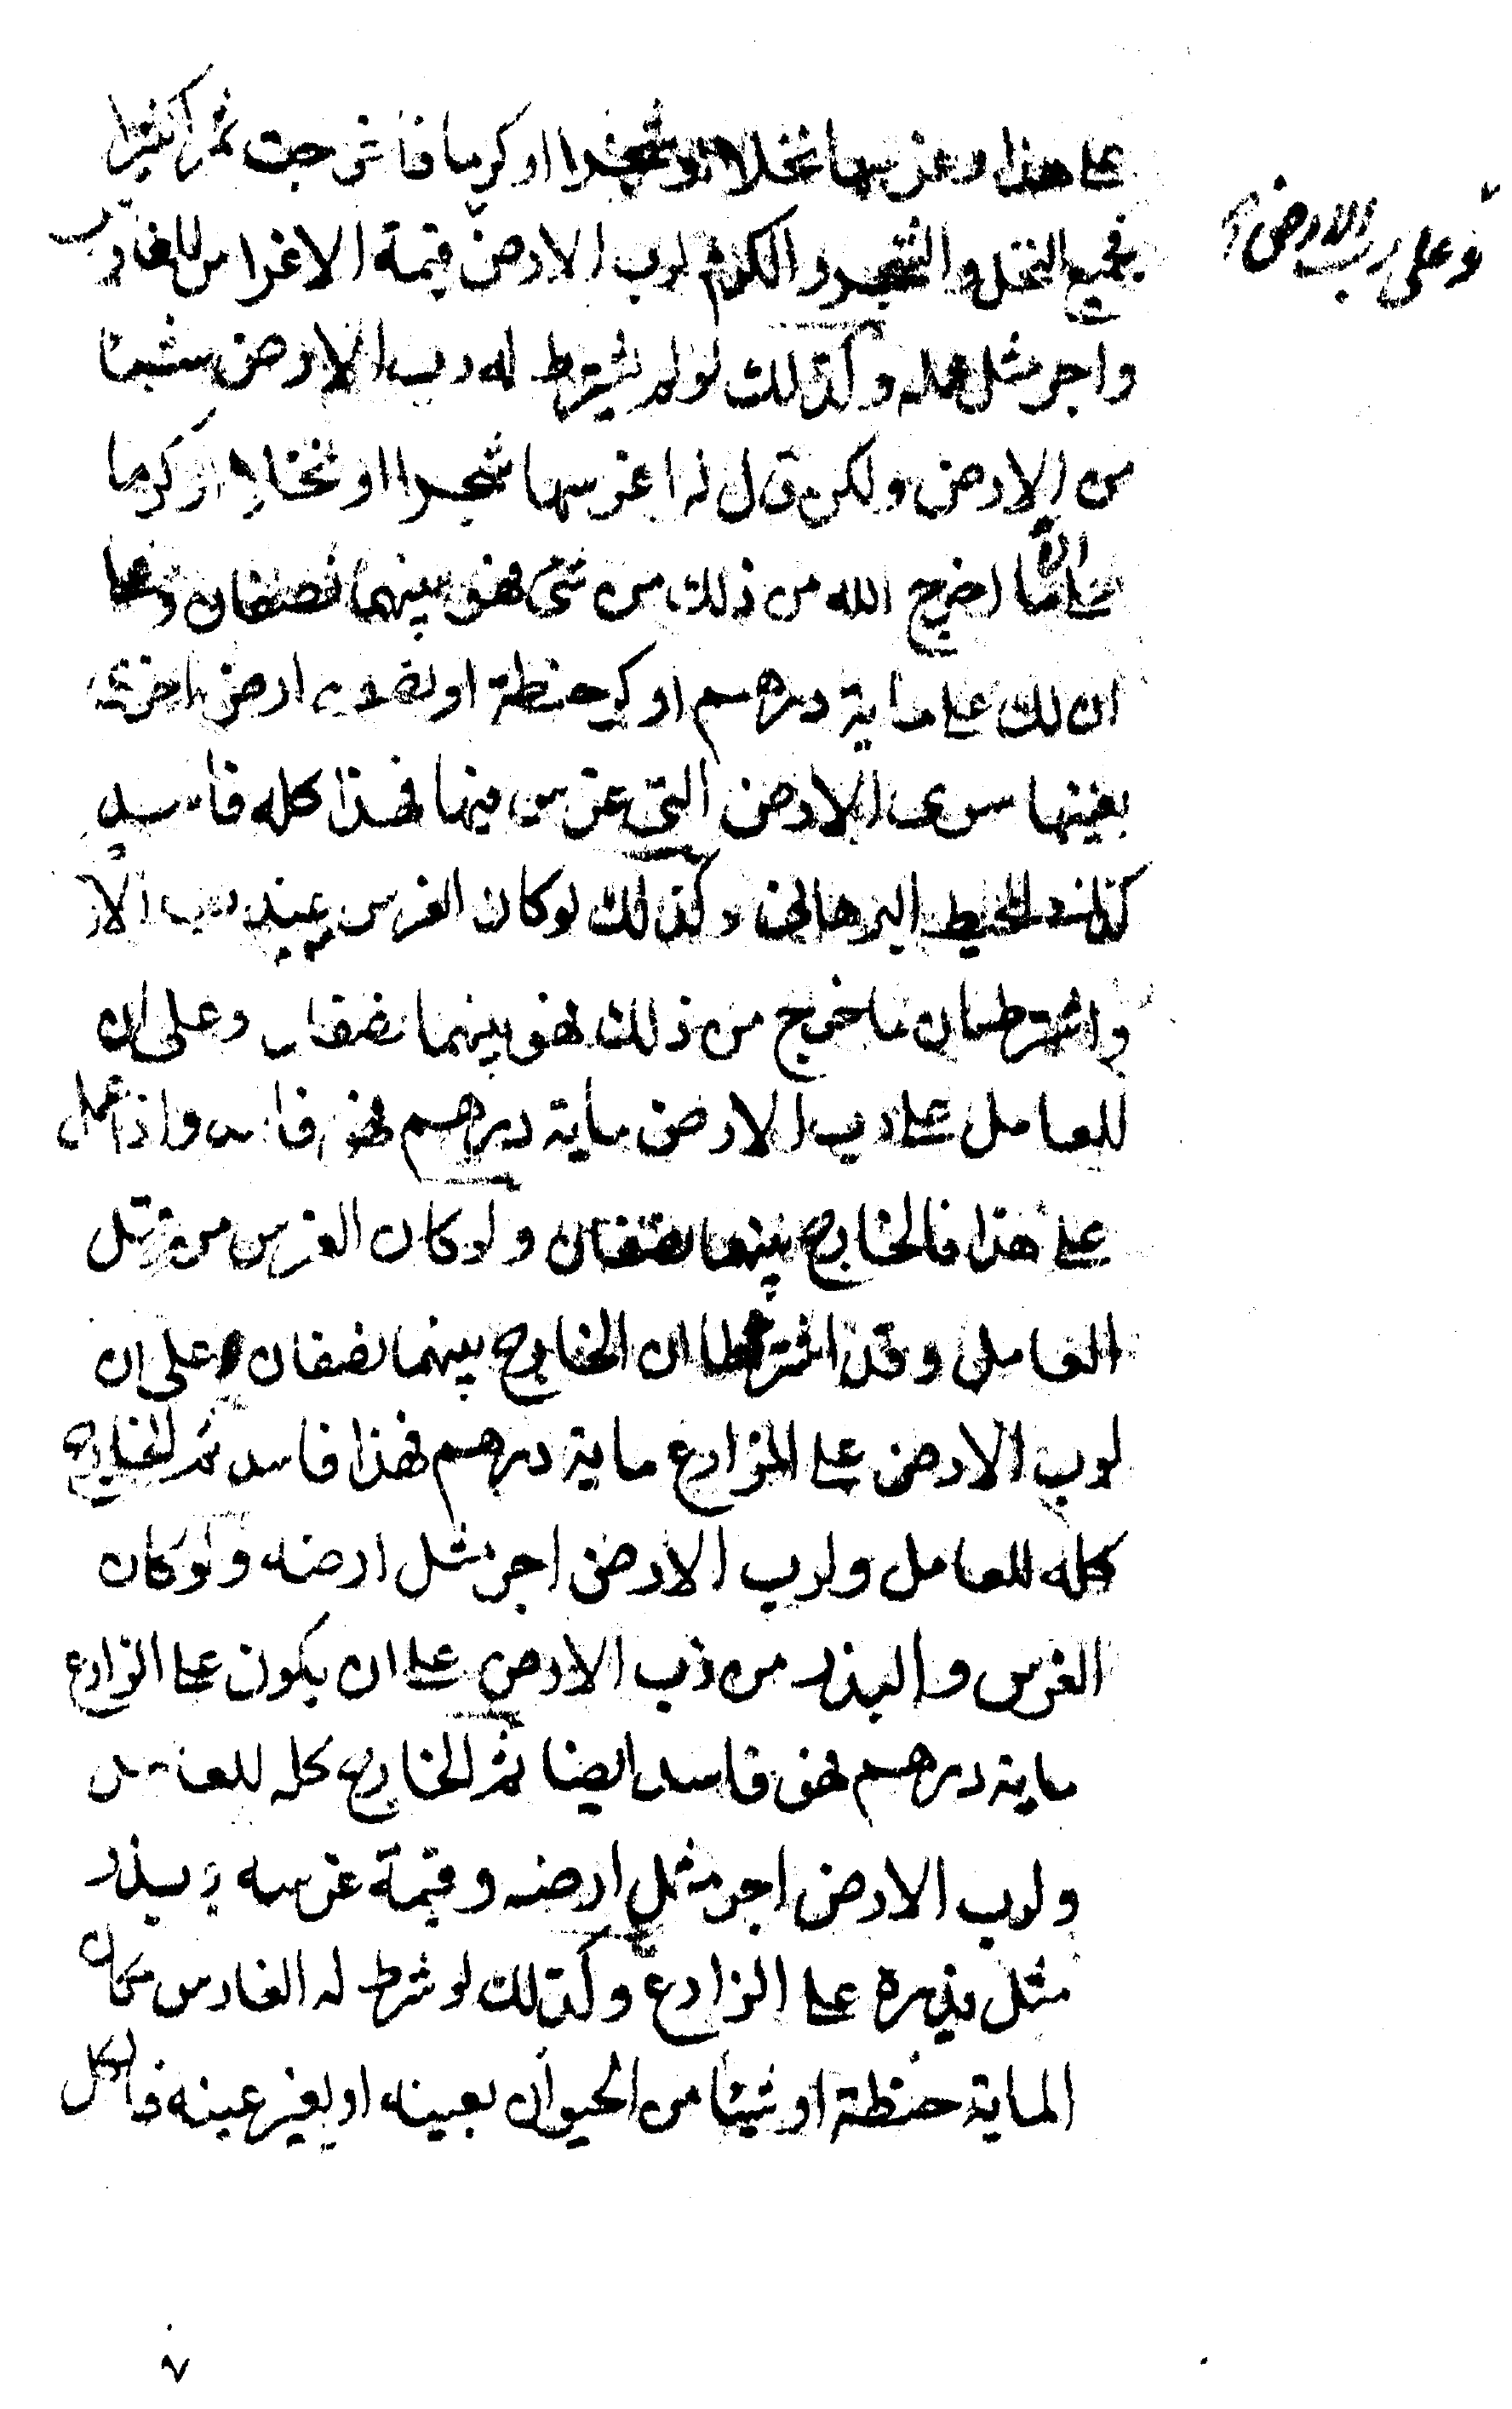 على هذا وغرسها نخلا او شجرا او كرما فاخرجت ثمرا كثيرا
فجميع النخل والشجر والكرم لرب الارض قيمة الاغراس للغارس
وعلى رب الارض
واجر مثل عمله وكذلك لو لم يشترط له رب الارض شيئا
من الارض ولكن قال له اغرسها شجرا او نخلا او كرما
على ان ما اخرج الله من ذلك من شئ فهو بينهما نصفان وعلى
ان لك على ماية درهم او كر حنطة او نصف ارض اخرى
بعينها سوى الارض التي غرس فيها فهذا كله فاسد
كذا في المحيط البرهاني وكذلك لو كان الغرس عند رب الار
واشترطا ان ما خرج من ذلك فهو بينهما نصفان وعلى ان
للعامل على رب الارض ماية درهم فهو فاسد واذا عمل
على هذا فالخارج بينهما نصفان ولو كان الغرس من قبل
العامل وقد اشترطا ان الخارج بينهما نصفان وعلى ان
لرب الارض على المزارع ماية درهم فهذا فاسد ثم الخارج
كله للعامل ولرب الارض اجر مثل ارضه ولو كان
الغرس والبذر من رب الارض على ان يكون على الزارع
ماية درهم فهو فاسد ايضا ثم الخارج كله للعامل
ولرب الارض اجر مثل ارضه وقيمة غرسه وبذر
مثل بذره على الزارع وكذلك لو شرط له الغارس مكان
الماية حنطة او شيئا من الحيوان بعينه او بغير عينه فالكل
٧